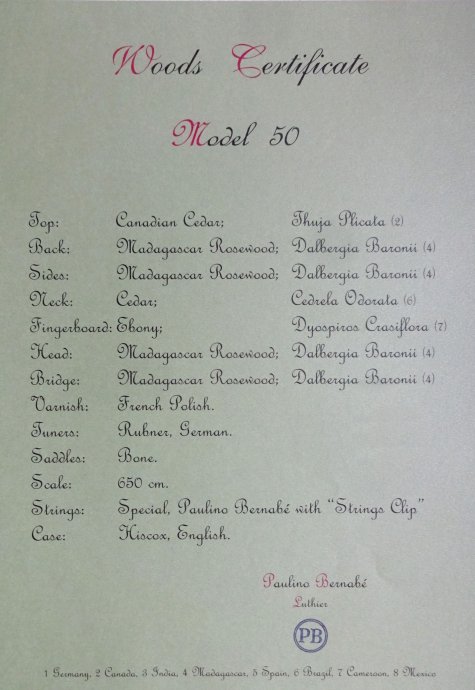 Woods Certificate
Model 50
Top: Canadian Cedar; Thuja Plicata (2)
Back: Madagascar Rosewood; Dalbergia Baronii (4)
Sides: Madagascar Rosewood; Dalbergia Baronii (4)
Neck: Cedar; Cedrela Odorata (6)
Fingerboard: Ebony; Dyospiros Crasiflora (7)
Head: Madagascar Rosewood; Dalbergia Baronii (4)
Bridge: Madagascar Rosewood; Dalbergia Baronii (4)
Varnish: French Polish.
Tuners: Rubner, German.
Saddles: Bone.
Scale: 650 cm.
Strings: Special, Paulino Bernabé with “Strings Clip”
Case: Hiscox, English.
Paulino Bernabé
Luthier
PB
1 Germany, 2 Canada, 3 India, 4 Madagascar, 5 Spain, 6 Brazil, 7 Cameroon, 8 Mexico